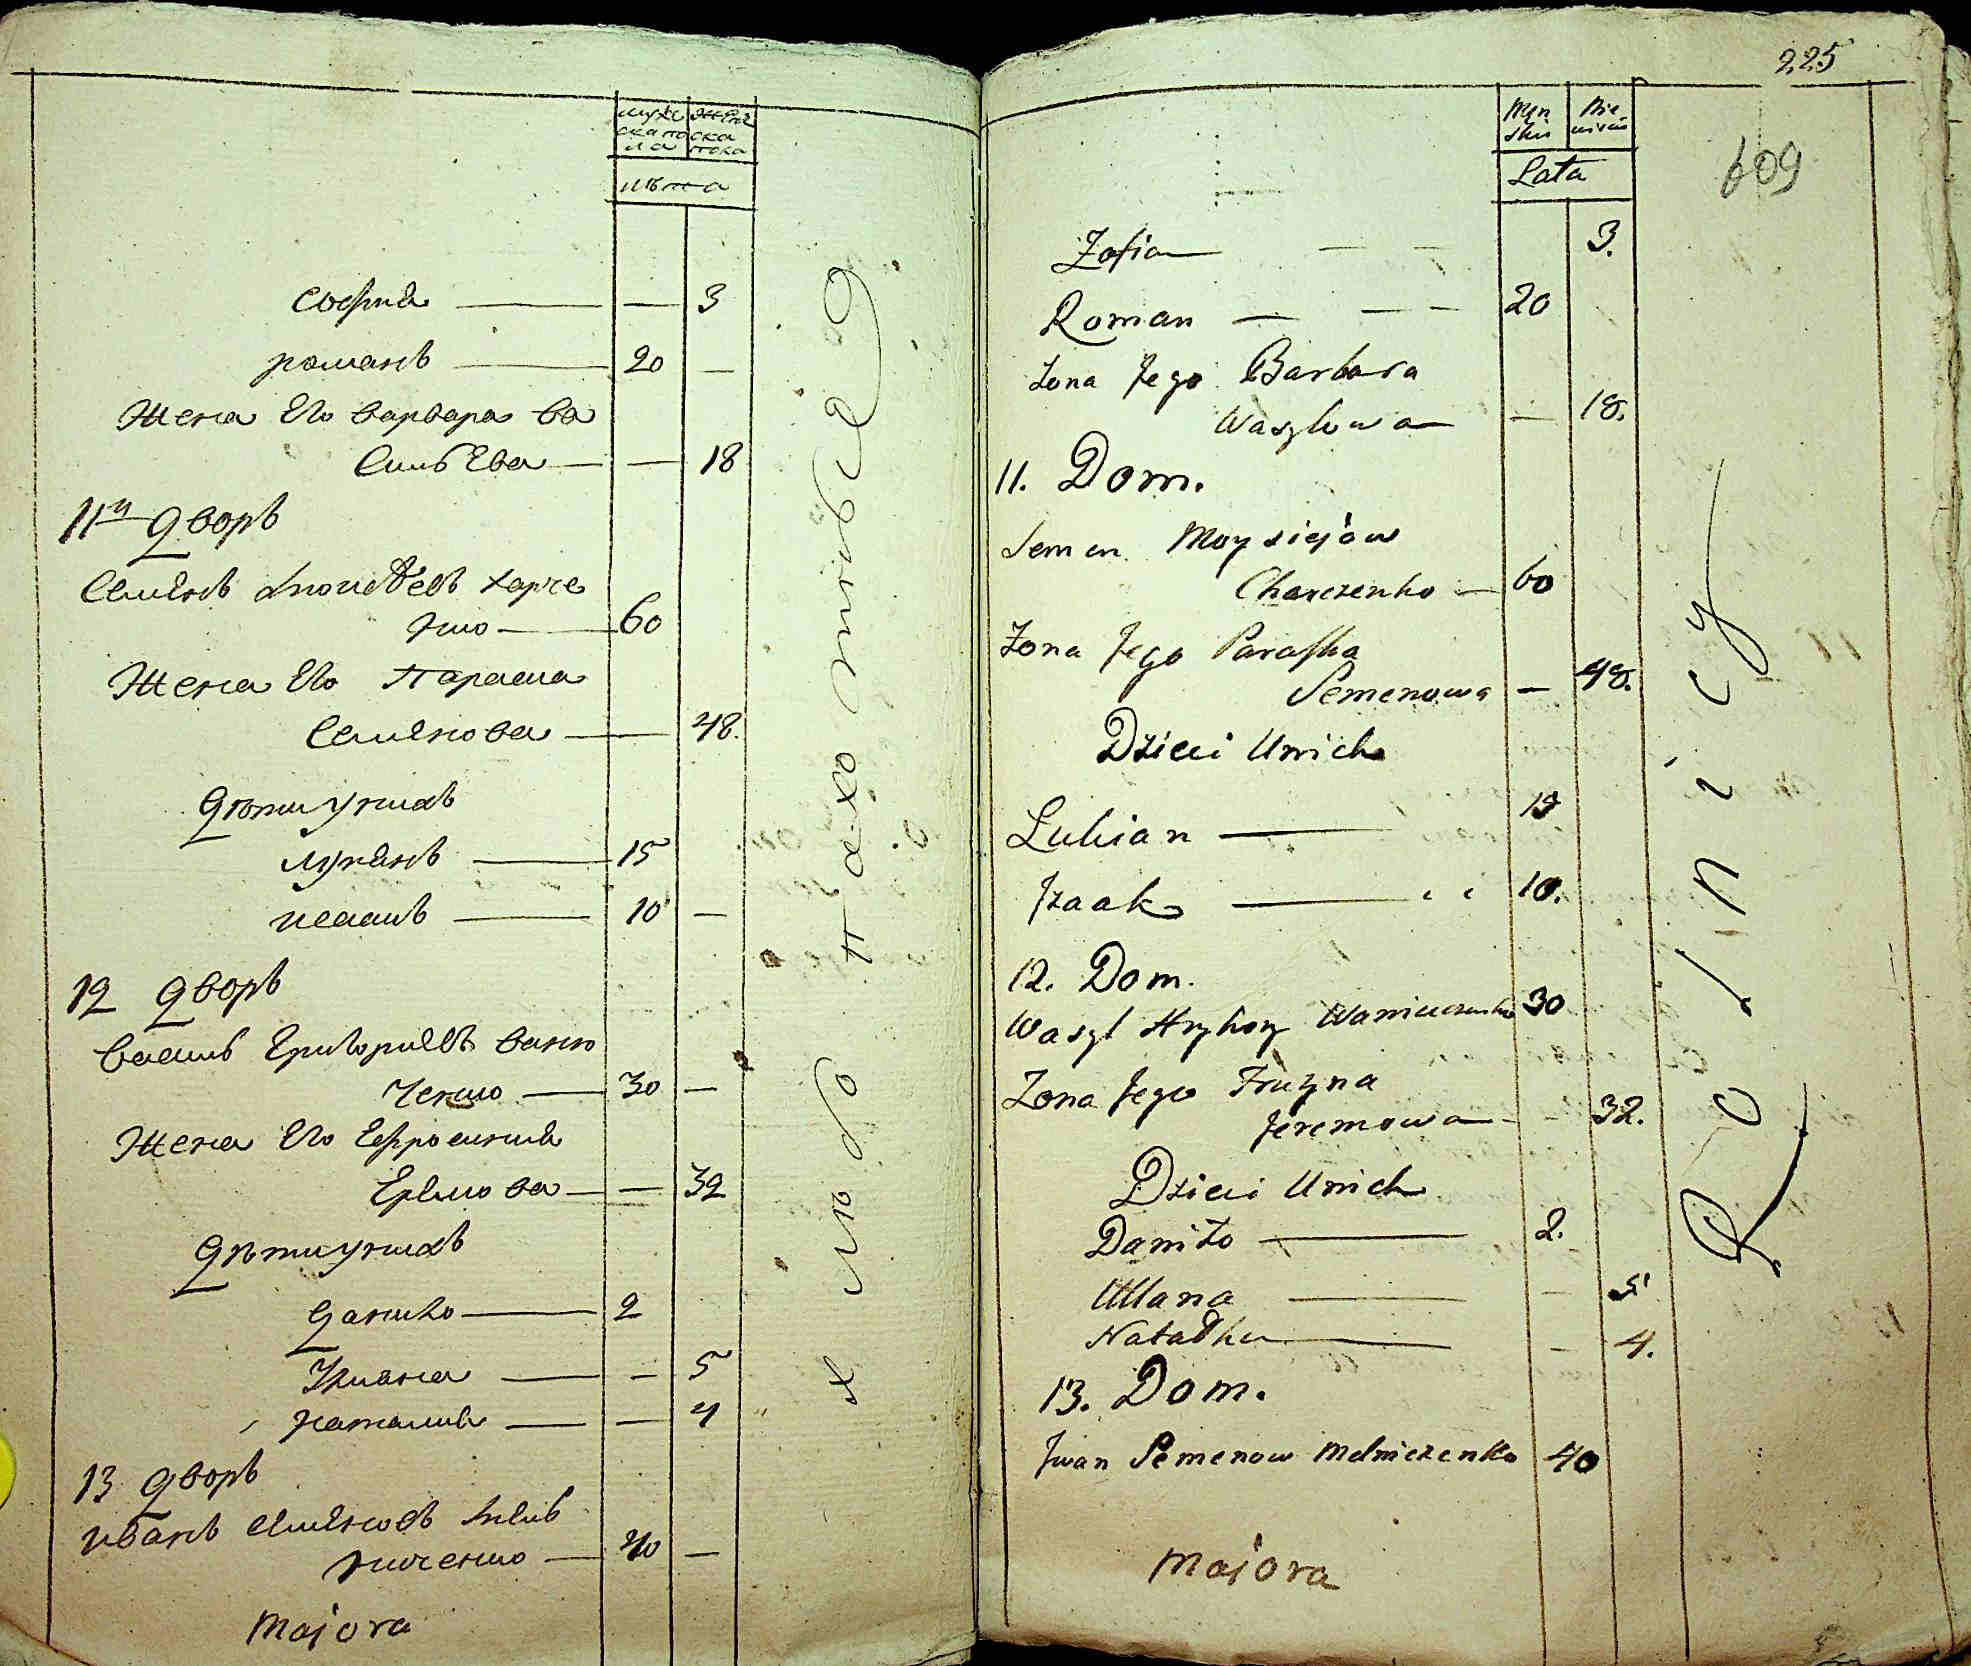 мужеска пола
женска пола
лѣта
Софиа — — 3
романъ — 20 —
Жена Его варвара ва
силѣева — — 18
11й дворъ
Семенъ Моисѣевъ харче
нко — 60
Жена Его Параска
Семенова — 48.
дѣти унихъ
лукянъ — 15
исаакъ — 10 —
12 дворъ
василь Григориевъ ваню
ченко — 30 —
Жена Его Ефросиниа
Ерѣмова — — 32
дѣти унихъ
данило — 2
Улиана — — 5
наталиа — — 4
13 дворъ
иванъ Семеновъ мель
ниченко — 40 —
Majora
хлѣбо пахотныѣ
225
609
Męn
skie
Nie
wieście
Lata
Zofia — — 3.
Roman — — — 20
Zona Jego Barbara
Waszlowa — 18.
11. Dom.
Semen Moysiejów
Charczenko — 60
Zona Jego Paraska
Semenowa — 48.
Dzieci Unich
Lukian — 15
Izaak — 10.
12. Dom.
Wasyl Hryhory Waniuczenko 30
Zona Jego Fruzyna
Jeremowa — 32.
Dzieci Unich
Daniło — 2.
Ullana — — 5
Natalka — — 4.
13. Dom.
Jwan Semenow Melniczenko 40
Majora
Rolnicy